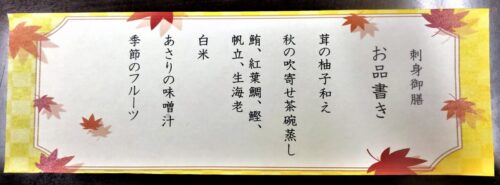 刺身御膳
お品書き
茸の柚子和え
秋の吹寄せ茶碗蒸し
鮪、紅葉鯛、鰹、
帆立、生海老
白米
あさりの味噌汁
季節のフルーツ